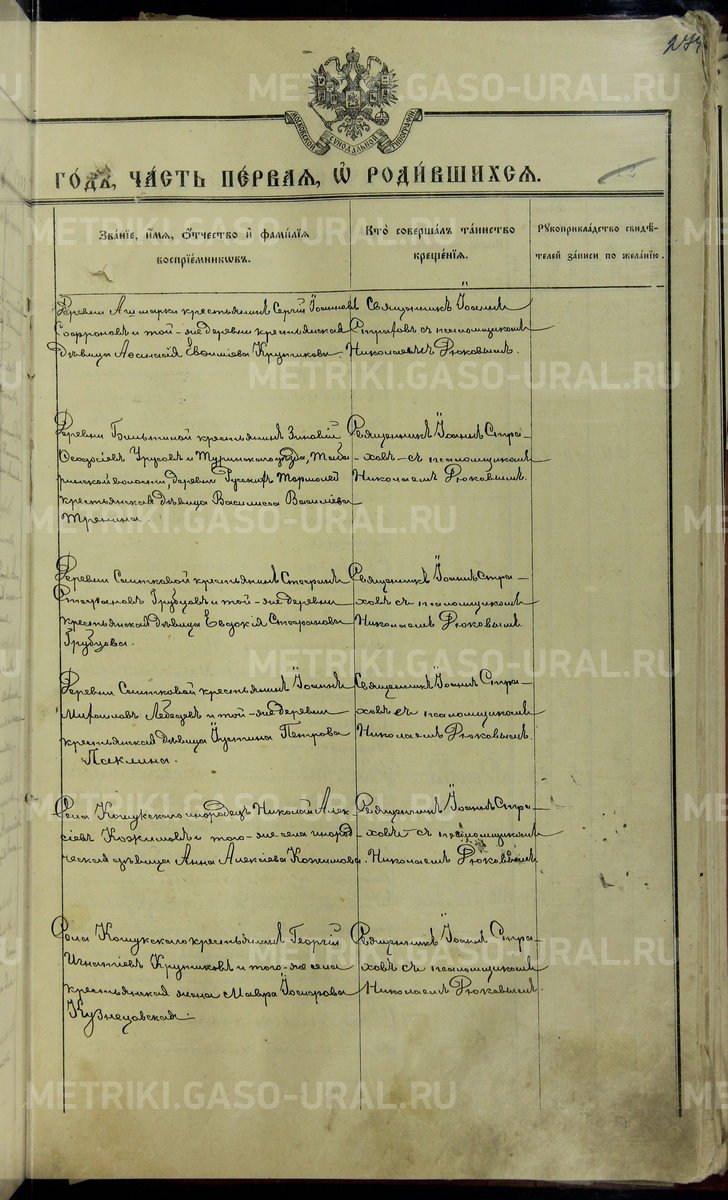 МОСКОВСКОЙ СѴНОДАЛЬНОЙ ТИПОГРАФІИ
ГО́ДЪ, ЧА́СТЬ ПЕ́РВАЯ, Ѡ҆ РОДИ́ВШИХСЯ.
Зва́нїе, и҆́мя, ѻ҆́тчество и҆ фами́лїя
воспрїе́мникѡвъ.
Кто̀ соверша́лъ та́инство
креще́нїя.
Рꙋкоприкла́дство свидѣ́-
телей за́писи по жела́нїю.
Деревни Ашмарки крестьянинъ Сергій Іоанновъ
Софроновъ и той-же деревни крестьянская
дѣвица Аѳанасія Евѳиміева Крутикова.
Священникъ Іоаннъ
Страховъ съ псаломщикомъ
Николаемъ Рюковымъ.
Деревни крестьянинъ Зиновій
Ѳеодосіевъ Урусовъ и Туринскаго уѣзда, Таба-
ринской волости, деревни
крестьянская дѣвица Василисса Василіева
Тренина.
Священникъ Іоаннъ Стра-
ховъ съ псаломщикомъ
Николаемъ Рюковымъ.
Деревни Саитковой крестьянинъ Стефанъ
Стефановъ Грубцовъ и той-же деревни
крестьянская дѣвица Евдокія Стефанова
Грубцова.
Священникъ Іоаннъ Стра-
ховъ съ псаломщикомъ
Николаемъ Рюковымъ.
Деревни Саитковой крестьянинъ Іоаннъ
Михаиловъ Лебедевъ и той-же деревни
крестьянская дѣвица Іустина Петрова
Паклина.
Священникъ Іоаннъ Стра-
ховъ съ псаломщикомъ
Николаемъ Рюковымъ.
Села Кошукскаго инородецъ Николай Алек-
сіевъ Кожимовъ и того-же села инород-
ческая дѣвица Анна Алексіева Кожимова.
Священникъ Іоаннъ Стра-
ховъ съ псаломщикомъ
Николаемъ Рюковымъ.
Села Кошукскаго крестьянинъ Георгій
Игнатіевъ Крутиковъ и того-же села
крестьянская жена Мавра
Кузнецовская.
Священникъ Іоаннъ Стра-
ховъ съ псаломщикомъ
Николаемъ Рюковымъ.
METRIKI.GASO-URAL.RU